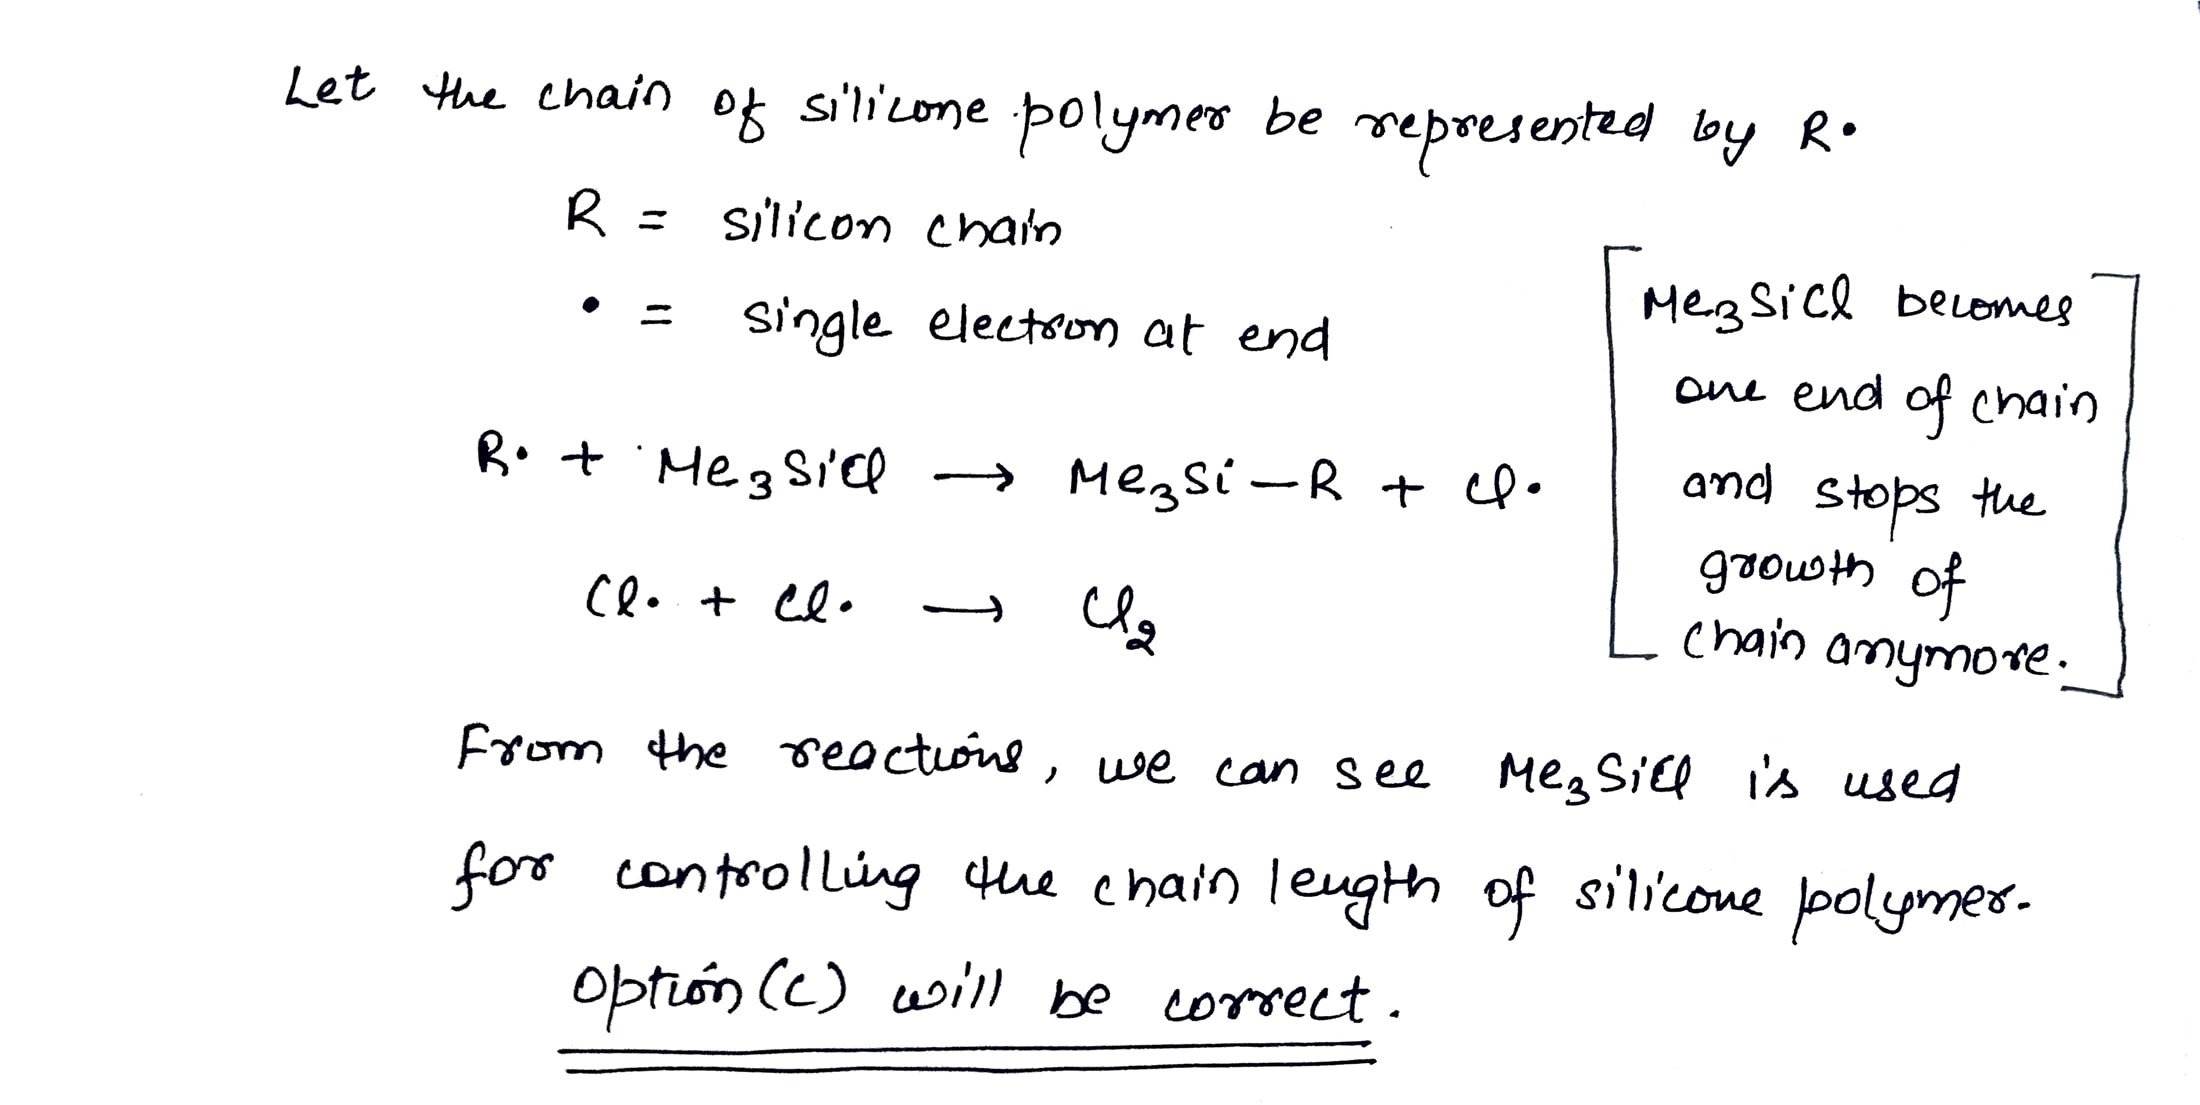 Let the chain of silicone polymer be represented by R•
R = silicon chain
• = single electron at end
R• + Me3SiCl → Me3Si–R + Cl•
Cl• + Cl• → Cl2
[Me3SiCl becomes
one end of chain
and stops the
growth of
chain anymore.]
From the reactions, we can see Me3SiCl is used
for controlling the chain length of silicone polymer.
Option (c) will be correct.